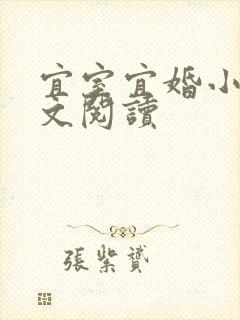 宜室宜婚小
文閱讀
張紫贇